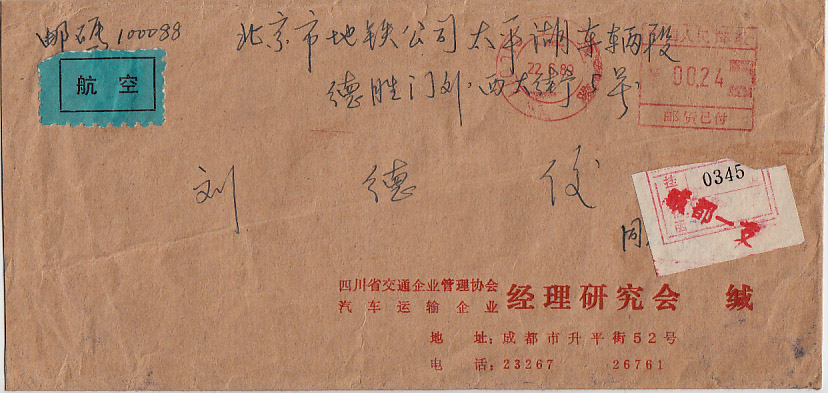 邮码100088
北京市地铁公司太平湖车辆段
德胜门外西大街5号
航空
22.6.89
中国人民邮政
0024
邮资已付
刘 德
同
挂
0345
函
成都一支
四川省交通企业管理协会
汽车运输企业
经理研究会 缄
地 址:成都市升平街52号
电 话:23267 26761